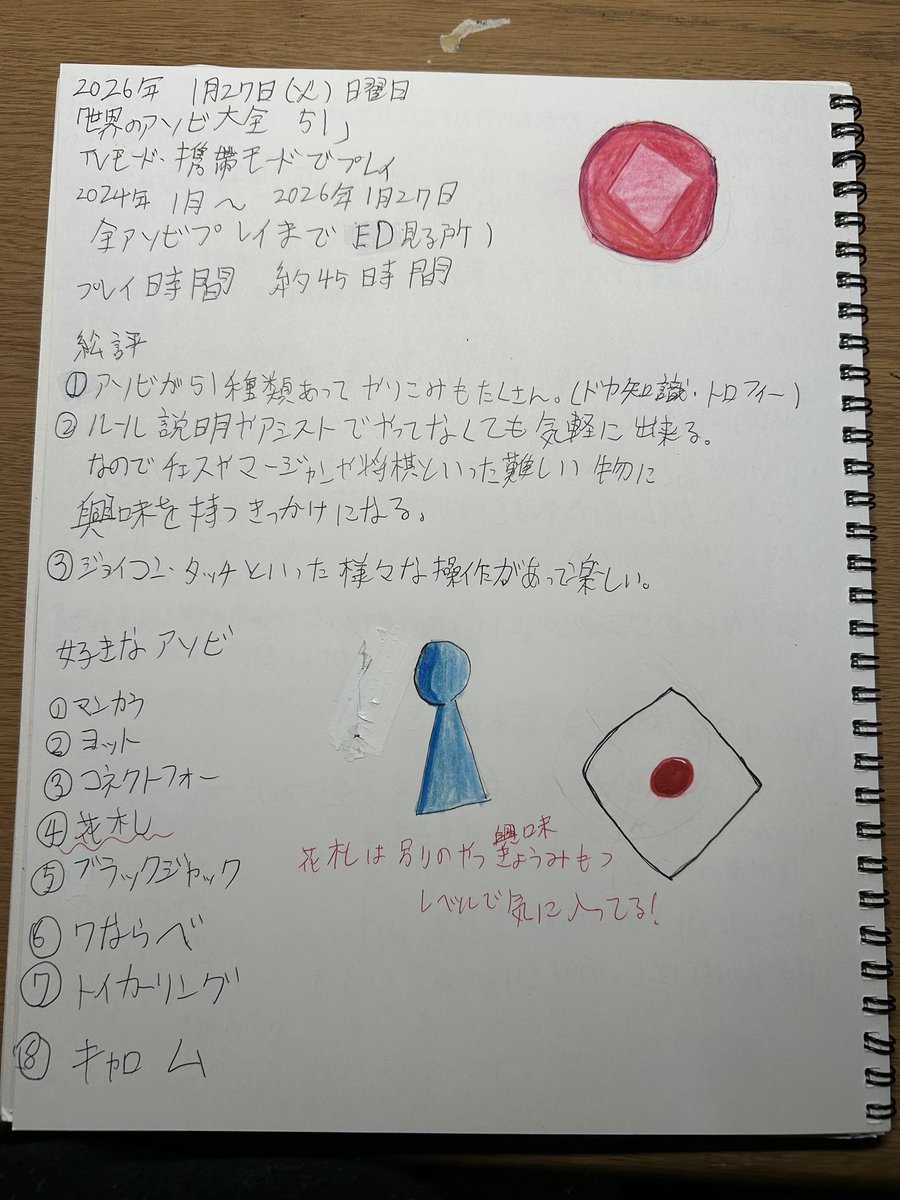 2026年 1月27日(火)日曜日
「世界のアソビ大全 51」
TVモード・携帯モードでプレイ
2024年 1月〜 2026年1月27日
全アソビプレイまで ED見る所)
プレイ時間 約45時間
総評
①アソビが51種類あってやりこみもたくさん。(ドカ知識・トロフィー)
②ルール説明やアシストでやってなくても気軽に出来る。
なのでチェスやマージャンや将棋といった難しい物に
興味を持つきっかけになる。
③ジョイコン・タッチといった様々な操作があって楽しい。
好きなアソビ
①マンカラ
②ヨット
③コネクトフォー
④花札
⑤ブラックジャック
⑥7ならべ
⑦トイカーリング
⑧キャロム
花札は別のやつ興味きょうみもつ
レベルで気に入ってる!